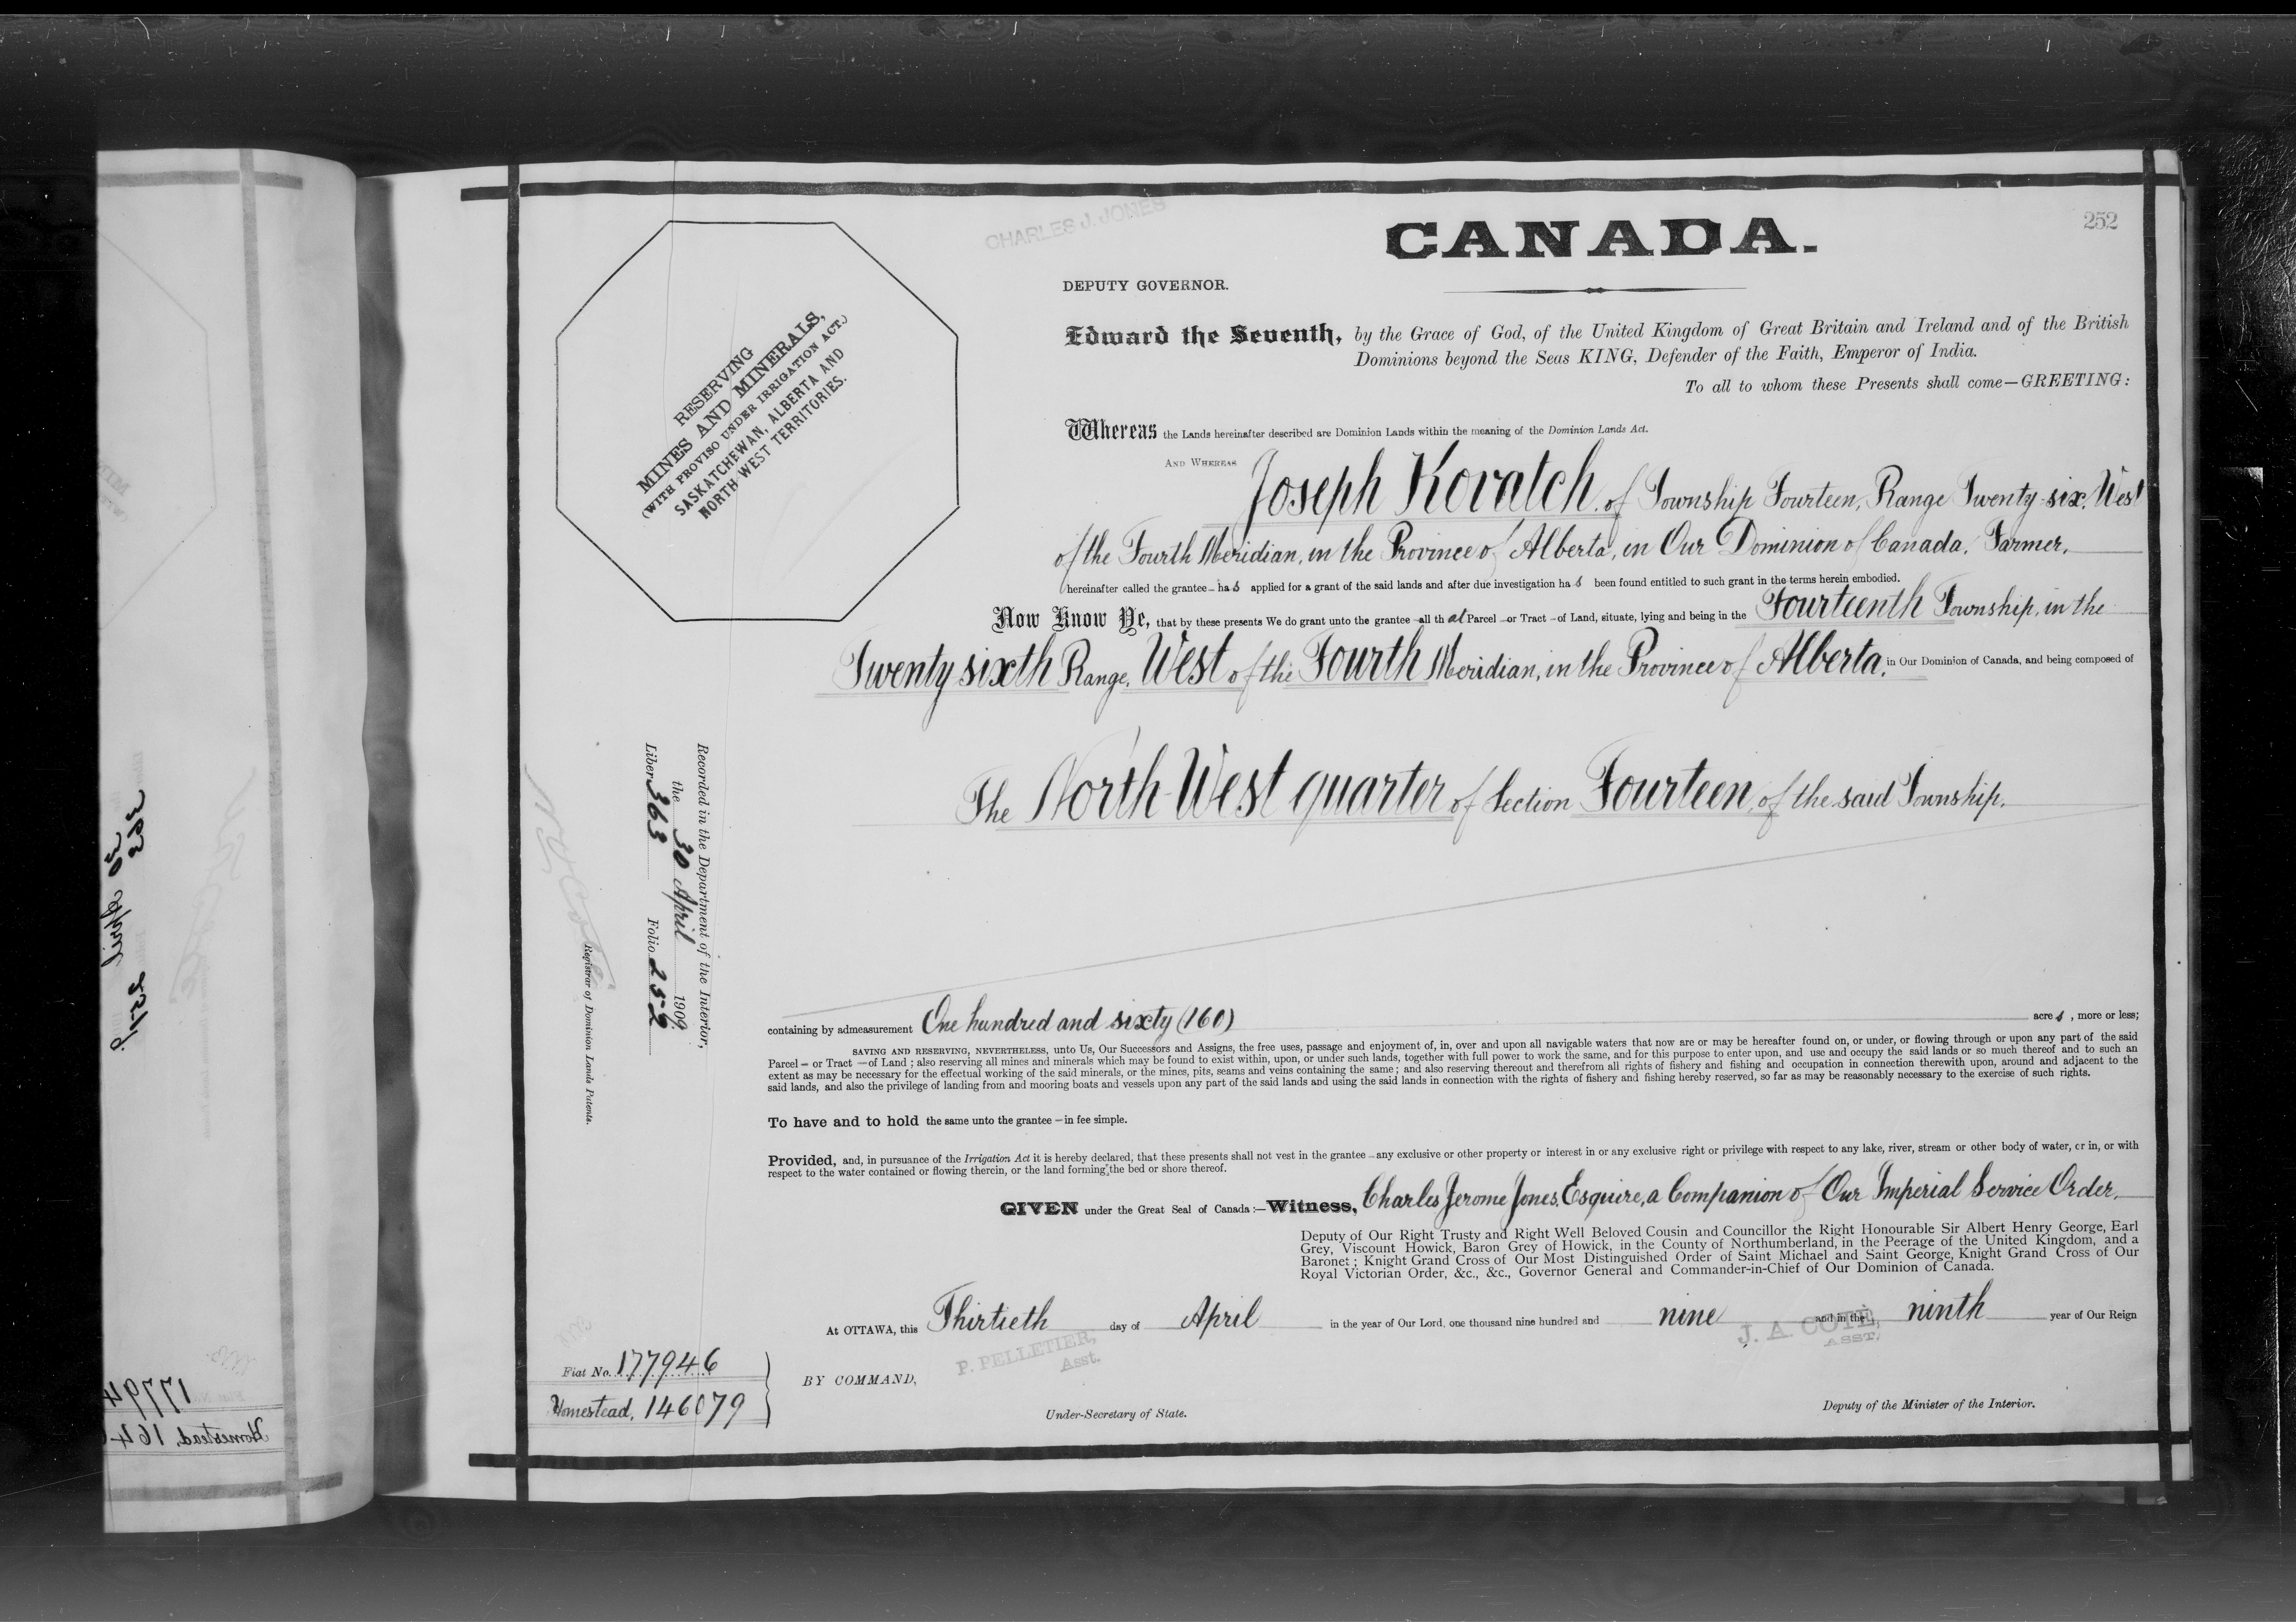 252
CHARLES J. JONES
CANADA.
DEPUTY GOVERNOR.
RESERVING
MINES AND MINERALS,
(WITH PROVISO UNDER IRRIGATION ACT.)
SASKATCHEWAN, ALBERTA AND
NORTH WEST TERRITORIES.
Edward the Seventh, by the Grace of God, of the United Kingdom of Great Britain and Ireland and of the British
Dominions beyond the Seas KING, Defender of the Faith, Emperor of India.
To all to whom these Presents shall come—GREETING:
Whereas the Lands hereinafter described are Dominion Lands within the meaning of the Dominion Lands Act.
AND WHEREAS Joseph Kovatch of Township Fourteen, Range Twenty-six, West
of the Fourth Meridian, in the Province of Alberta, in Our Dominion of Canada, Farmer,
hereinafter called the grantee – has applied for a grant of the said lands and after due investigation has been found entitled to such grant in the terms herein embodied.
Now Know Ye, that by these presents We do grant unto the grantee – all that Parcel – or Tract – of Land, situate, lying and being in the Fourteenth Township, in the
Twenty sixth Range, West of the Fourth Meridian, in the Province of Alberta, in Our Dominion of Canada, and being composed of
The North West quarter of Section Fourteen, of the said Township.
Recorded in the Department of the Interior,
the 30 April 1909.
Liber 363 Folio 252
Registrar of Dominion Lands Patents.
containing by admeasurement One hundred and sixty (160) acres, more or less;
SAVING AND RESERVING, NEVERTHELESS, unto Us, Our Successors and Assigns, the free uses, passage and enjoyment of, in, over and upon all navigable waters that now are or may be hereafter found on, or under, or flowing through or upon any part of the said
Parcel – or Tract – of Land; also reserving all mines and minerals which may be found to exist within, upon, or under such lands, together with full power to work the same, and for this purpose to enter upon, and use and occupy the said lands or so much thereof and to such an
extent as may be necessary for the effectual working of the said minerals, or the mines, pits, seams and veins containing the same; and also reserving thereout and therefrom all rights of fishery and fishing and occupation in connection therewith upon, around and adjacent to the
said lands, and also the privilege of landing from and mooring boats and vessels upon any part of the said lands and using the said lands in connection with the rights of fishery and fishing hereby reserved, so far as may be reasonably necessary to the exercise of such rights.
To have and to hold the same unto the grantee – in fee simple.
Provided, and, in pursuance of the Irrigation Act it is hereby declared, that these presents shall not vest in the grantee – any exclusive or other property or interest in or any exclusive right or privilege with respect to any lake, river, stream or other body of water, or in, or with
respect to the water contained or flowing therein, or the land forming the bed or shore thereof.
GIVEN under the Great Seal of Canada:—Witness, Charles Jerome Jones, Esquire, a Companion of Our Imperial Service Order,
Deputy of Our Right Trusty and Right Well Beloved Cousin and Councillor the Right Honourable Sir Albert Henry George, Earl
Grey, Viscount Howick, Baron Grey of Howick, in the County of Northumberland, in the Peerage of the United Kingdom, and a
Baronet; Knight Grand Cross of Our Most Distinguished Order of Saint Michael and Saint George, Knight Grand Cross of Our
Royal Victorian Order, &c., &c., Governor General and Commander-in-Chief of Our Dominion of Canada.
At OTTAWA, this Thirtieth day of April in the year of Our Lord, one thousand nine hundred and nine and in the ninth year of Our Reign
P. PELLETIER,
Asst.
J. A. COTÉ,
ASST.
Fiat No. 177946
Homestead, 146079
BY COMMAND,
Under-Secretary of State.
Deputy of the Minister of the Interior.